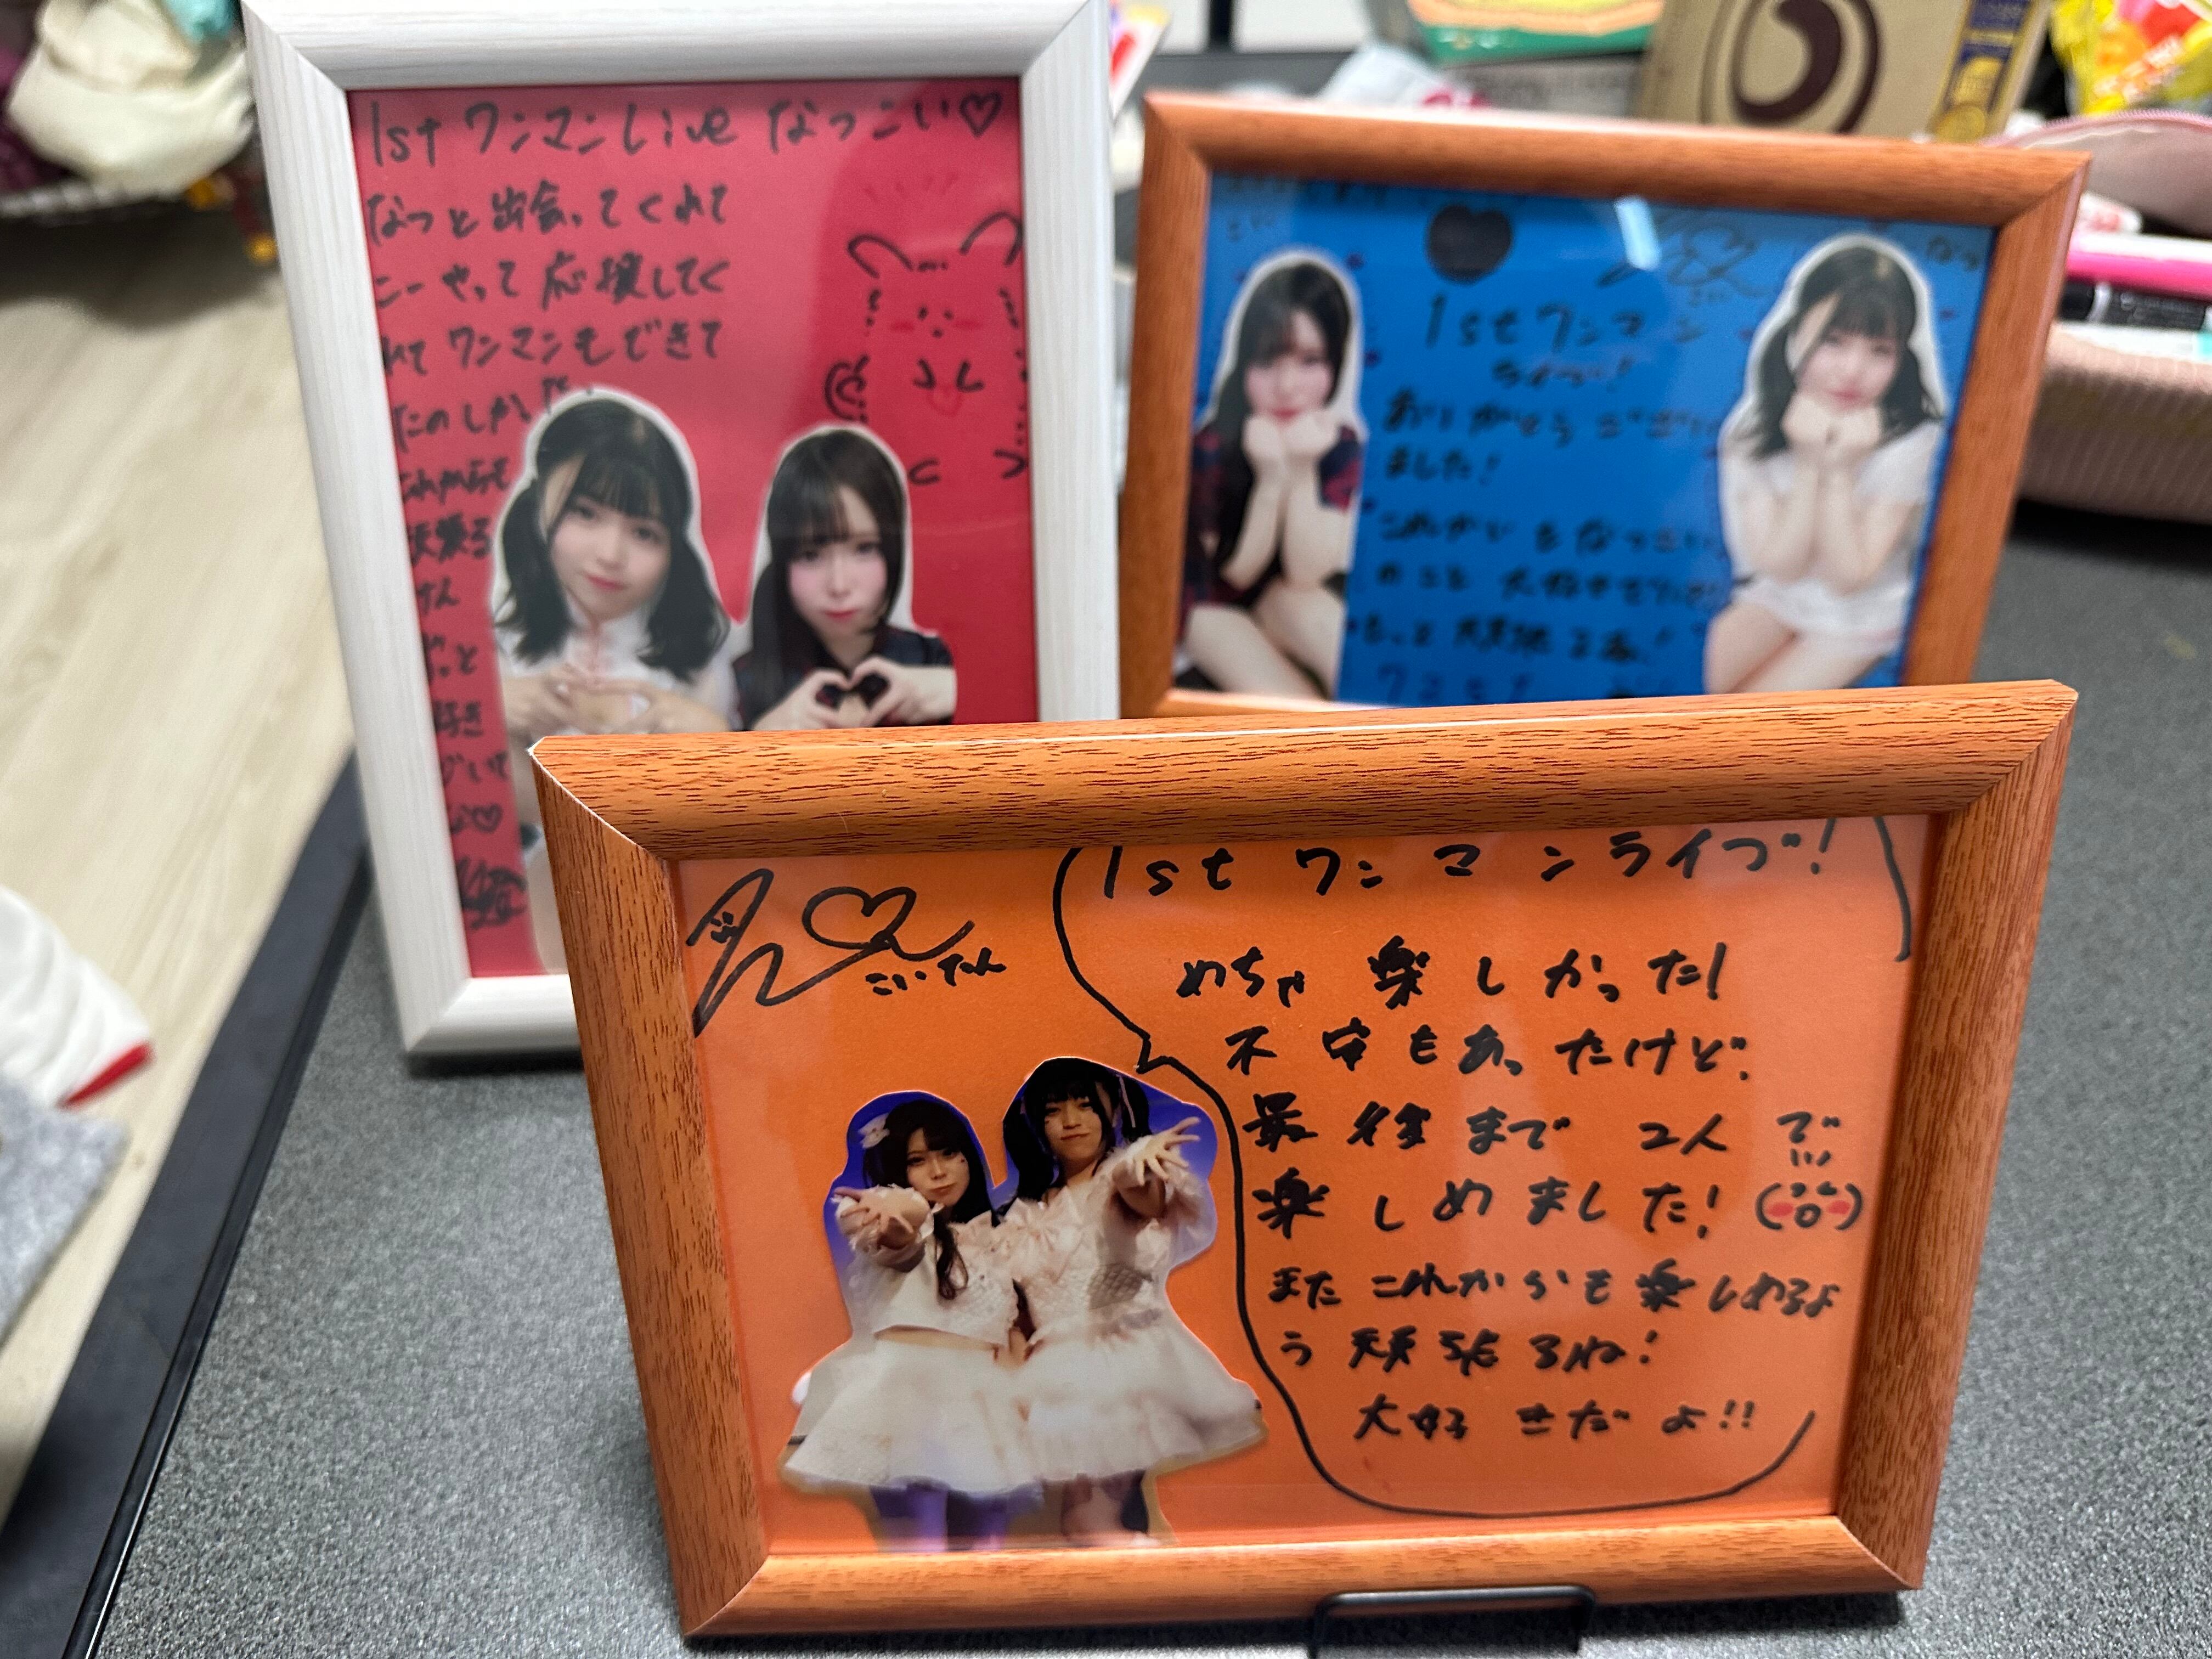 1st ワンマンLive なっこい♡
なつと出会ってくれて
こーやって応援してく
れてワンマンもできて
たのしかった
これからも
頑張る
けん
ずっと
好き
でいて
ね♡
1stワンマン
ライブ!
ありがとうござい
ました!
これからもなっこい
のこと大好きで
もっと頑張る
こいたん
1stワンマンライブ!
めちゃ楽しかった!
不安もあったけど、
最後まで2人で
楽しめました!
またこれからも楽しめるよ
う頑張るね!
大好きだよ!!